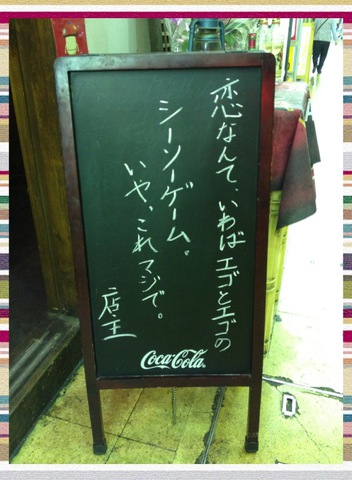 恋なんて、いわばエゴとエゴの
シーソーゲーム。
いや、これマジで。
店主
Coca-Cola